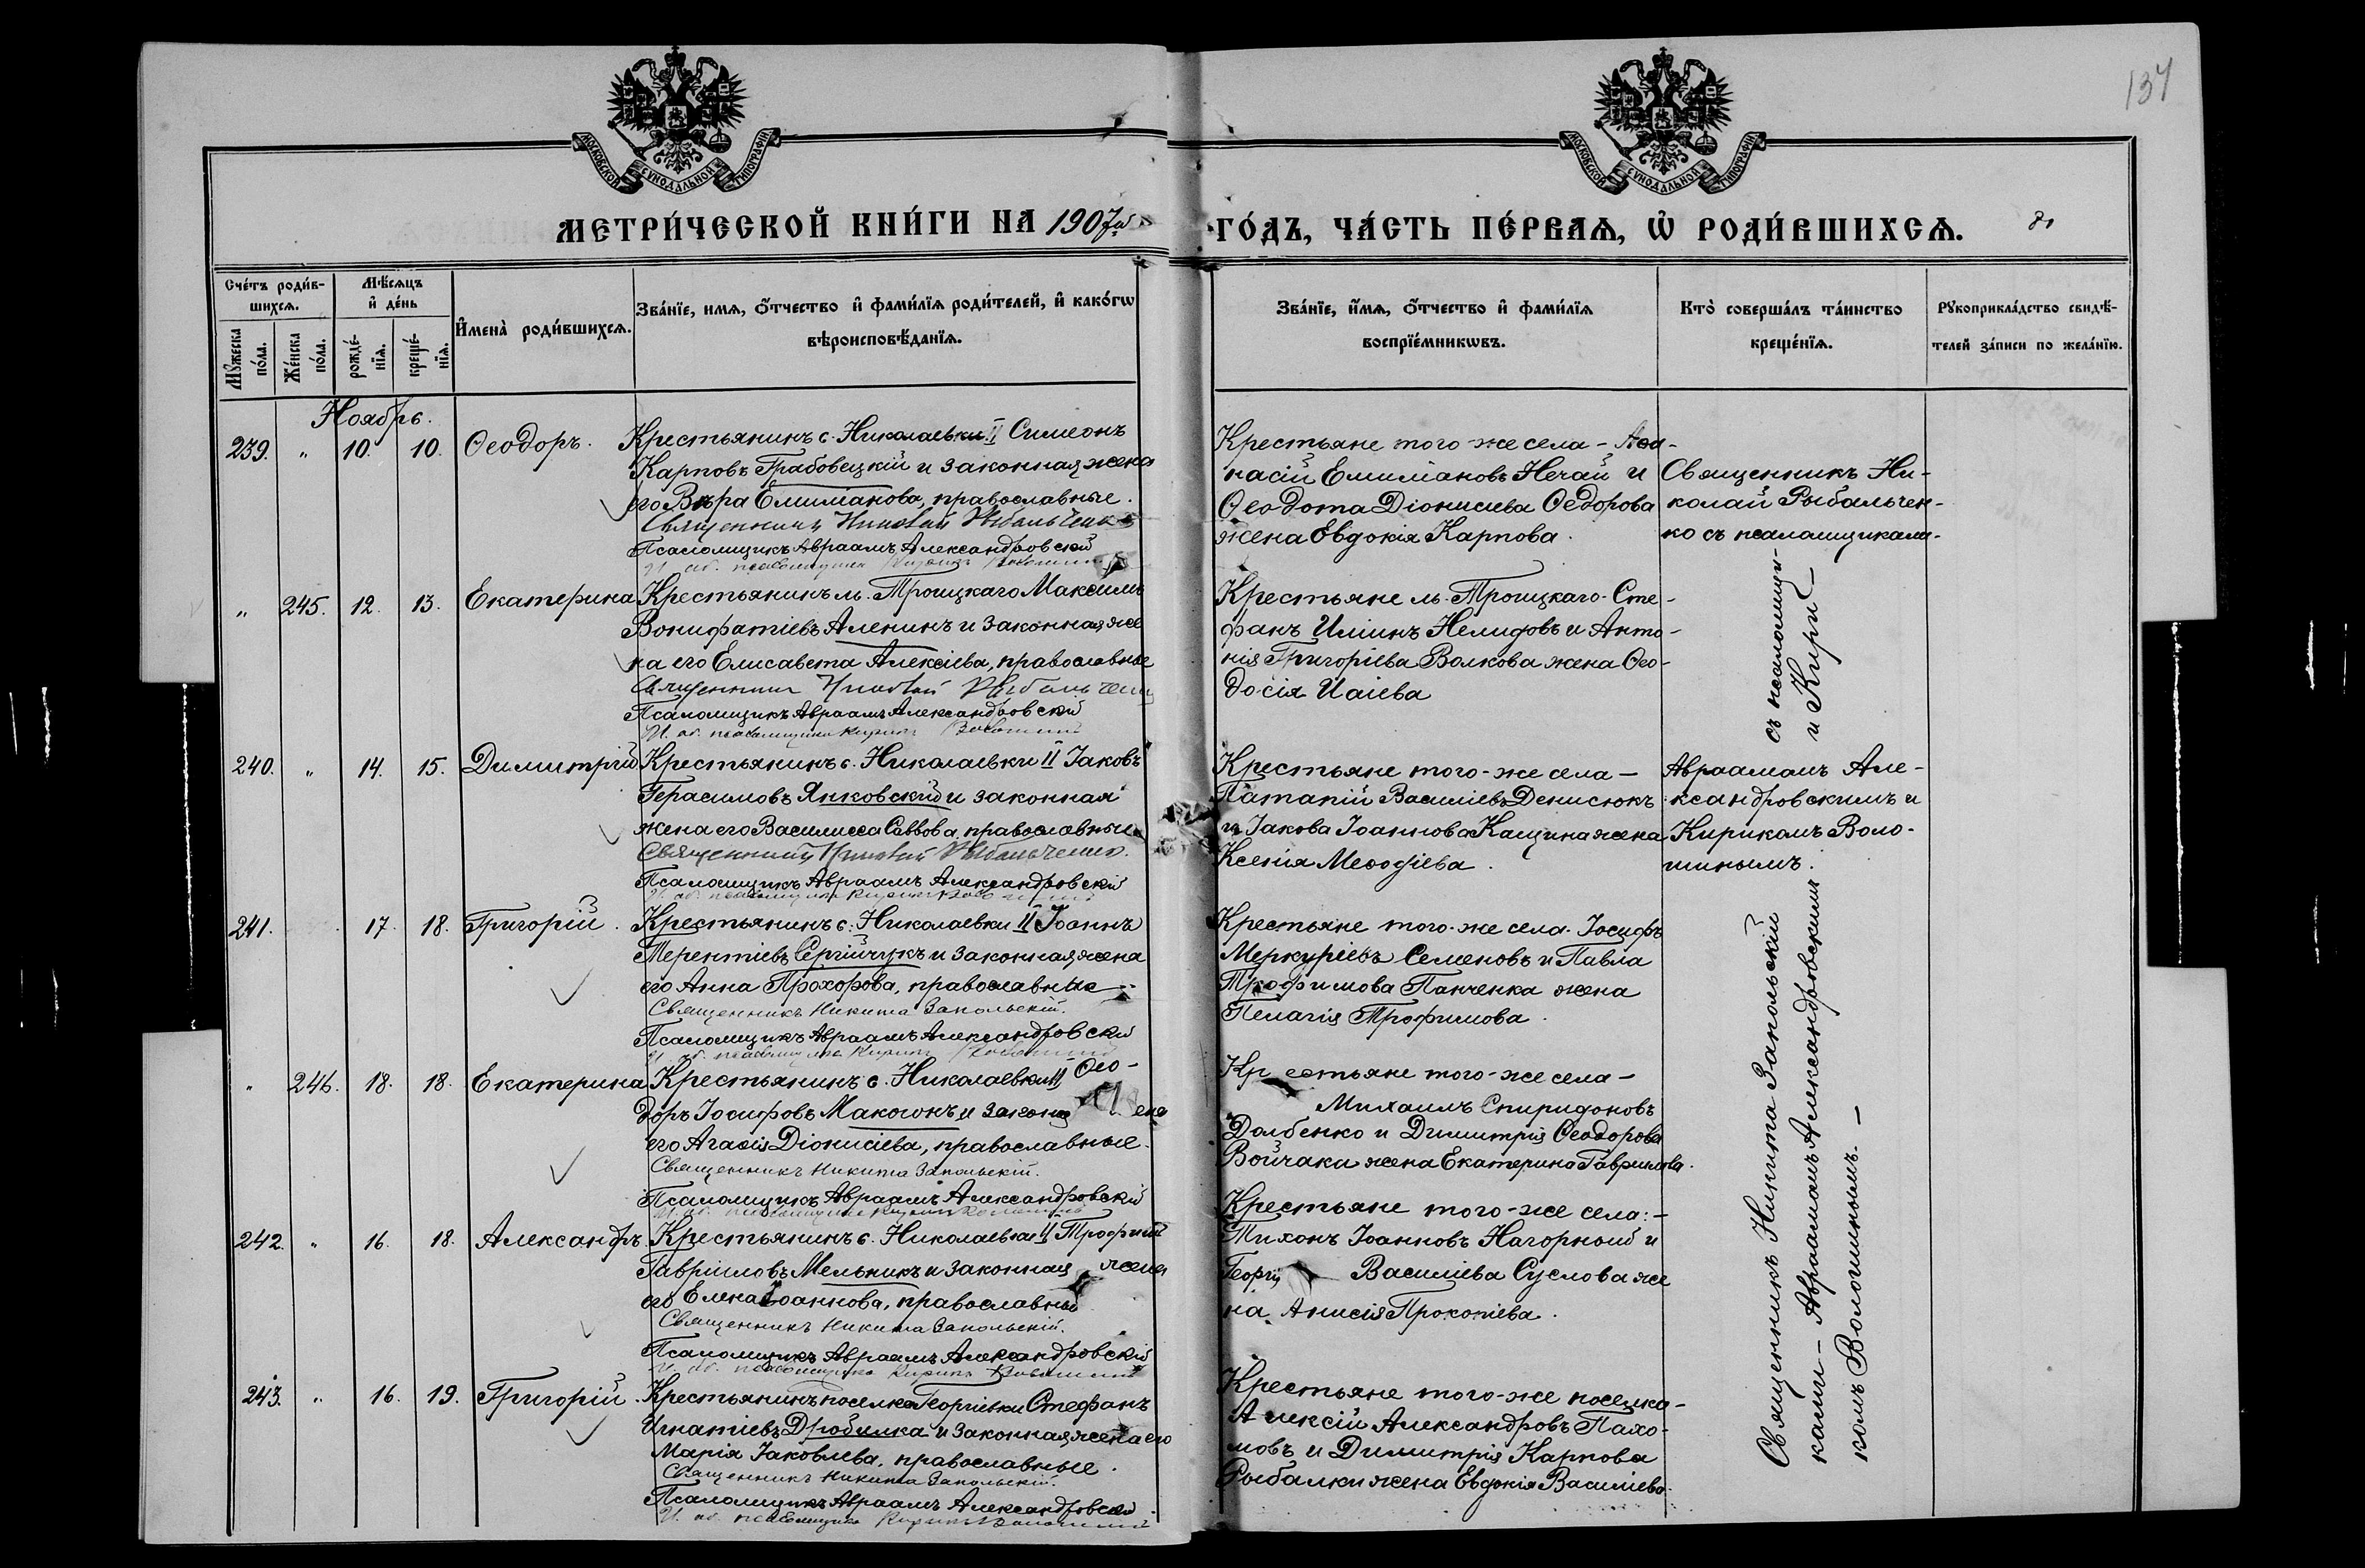 134
МОСКОВСКОЙ СУНОДАЛЬНОЙ ТИПОГРАФІИ
МОСКОВСКОЙ СУНОДАЛЬНОЙ ТИПОГРАФІИ
МЕТРИ́ЧЕСКОЙ КНИ́ГИ НА 1907й
ГО́ДЪ, ЧА́СТЬ ПЕ́РВАѦ, Ѿ РОДИ́ВШИХСѦ.
Счетъ роди́в-
шихсѧ.
Мꙋжеска по́ла.
Же́нска по́ла.
Мѣсѧцъ и де́нь
рожде́-
нїѧ.
креще́-
нїѧ.
Имена̀ роди́вшихсѧ.
Зва́нїе, имѧ, ѻтчество и фами́лїѧ роди́телей, и како́гѡ
вѣроисповѣданїѧ.
Зва́нїе, имѧ, ѻтчество и фами́лїѧ
воспрїе́мникѡвъ.
Кто̀ соверша́лъ та́инство
креще́нїѧ.
Рꙋкоприкла́дство свидѣ-
телей за́писи по жела́нїю.
Ноябрь.
239. " 10. 10. Ѳеодоръ.
Крестьянинъ с. Николаевки II Симеонъ
Карповъ Грабовецкій и законная жена
его Вѣра Емиліанова, православные.
Священникъ Николай Рыбальченко
Псаломщикъ Авраамъ Александровскій
И. об. псаломщика Кирикъ Волошинъ
Крестьяне того-же села - Аѳа-
насій Емиліановъ Нечай и
Ѳеодота Діонисіева Ѳедорова
жена Евдокія Карпова.
Священникъ Ни-
колай Рыбальчен-
ко съ псаломщиками-
" 245. 12. 13. Екатерина
Крестьянинъ м. Троицкаго Максимъ
Вонифатіевъ Аленинъ и законная же
на его Елисавета Алексіева, православные
Священникъ Николай Рыбальченко
Псаломщикъ Авраамъ Александровскій
И. об. псаломщика Кирикъ Волошинъ
Крестьяне м. Троицкаго - Сте-
фанъ Иліинъ Нелидовъ и Анто-
нія Григоріева Волкова жена Ѳео-
досія Исаіева
съ псаломщи-
и Кири-
240. " 14. 15. Димитрій
Крестьянинъ с. Николаевки II Іаковъ
Герасимовъ Янковскій и законная
жена его Василисса Саввова, православные
Священникъ Николай Рыбальченко.
Псаломщикъ Авраамъ Александровскій
И. об. псаломщика Кирикъ Волошинъ
Крестьяне того-же села -
Патапій Василіевъ Денисюкъ
и Іакова Іоаннова Кащина жена
Ксенія Меѳодіева.
Авраамомъ Але-
ксандровскимъ и
Кирикомъ Воло-
шинымъ.
241. 17. 18. Григорій.
Крестьянинъ с. Николаевки II Іоаннъ
Терентіевъ Сергійчукъ и законная жена
его Анна Прохорова, православные
Священникъ Никита Запольскій.
Псаломщикъ Авраамъ Александровскій
И. об. псаломщика Кирикъ Волошинъ
Крестьяне того-же села - Іосифъ
Меркуріевъ Семеновъ и Павла
Трофимова Панченка жена
Пелагія Трофимова.
" 246. 18. 18. Екатерина
Крестьянинъ с. Николаевки II Ѳео-
доръ Іосифовъ Макогонъ и закон
его Агаѳія Діонисіева, православные.
Священникъ Никита Запольскій.
Псаломщикъ Авраамъ Александровскій
И. об. псаломщика Кирикъ Волошинъ
Крестьяне того-же села -
Михаилъ Спиридоновъ
Долбенко и Димитрія Ѳеодорова
Войчака жена Екатерина Гаврилова.
242. " 16. 18. Александръ.
Крестьянинъ с. Николаевки II Трофимъ
Гавріиловъ Мельникъ и законная жена
его Елена Іоаннова, православные
Священникъ Никита Запольскій.
Псаломщикъ Авраамъ Александровскій
И. об. псаломщика Кирикъ Волошинъ
Крестьяне того-же села: -
Тихонъ Іоанновъ Нагорный и
Георгія Василіева Суслова же
на Анисія Прокопіева.
243. " 16. 19. Григорій.
Крестьянинъ поселка Георгіевки Стефанъ
Игнатіевъ Дробилка и законная жена его
Марія Іаковлева, православные.
Священникъ Никита Запольскій.
Псаломщикъ Авраамъ Александровскій
И. об. псаломщика Кирикъ Волошинъ
Крестьяне того-же поселка -
Алексій Александровъ Пахо-
мовъ и Димитрія Карпова
Рыбалки жена Евдокія Василіева.
Священникъ Никита Запольскій
ками - Авраамомъ Александровскимъ
комъ Волошинымъ. -